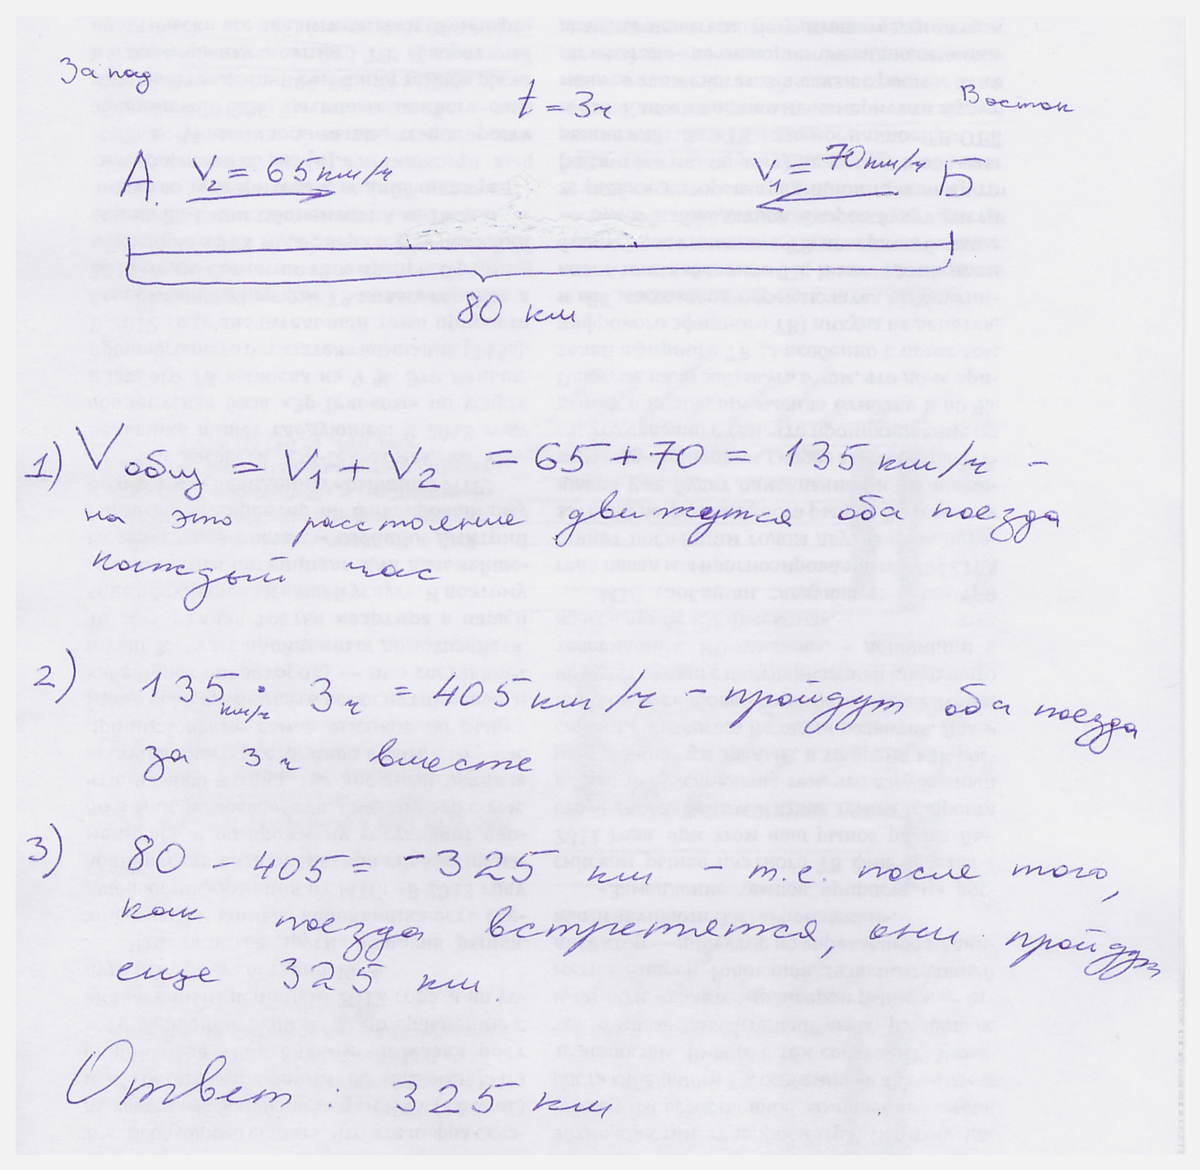 Запад
t = 3ч
Восток
А V2 = 65 км/ч V1 = 70 км/ч Б
80 км
1) Vобщ = V1 + V2 = 65 + 70 = 135 км/ч -
на это расстояние движутся оба поезда
каждый час
2) 135 км/ч · 3ч = 405 км/ч - пройдут оба поезда
за 3ч вместе
3) 80 - 405 = -325 км - т.е. после того,
как поезда встретятся, они пройдут
еще 325 км.
Ответ: 325 км